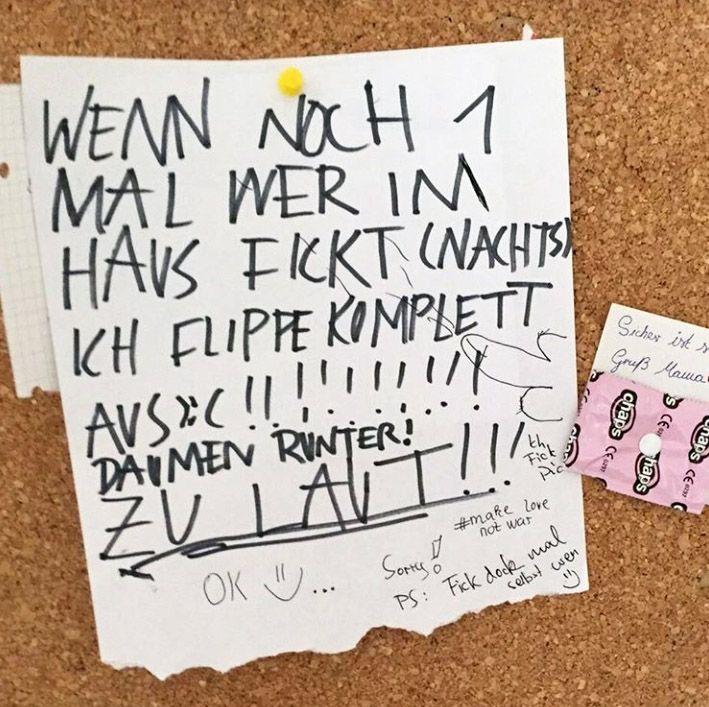 WENN NOCH 1
MAL WER IM
HAUS FICKT (NACHTS)
ICH FLIPPE KOMPLETT
AUS >:( !! !!!!!!!
DAUMEN RUNTER!
ZU LAUT!!!
th
Fick
Pic
#make love
not war
OK
Sorry!
PS: Fick doch mal
selbst wen
Sicher ist
Gruß Mama
chaps
chaps
chaps
chaps